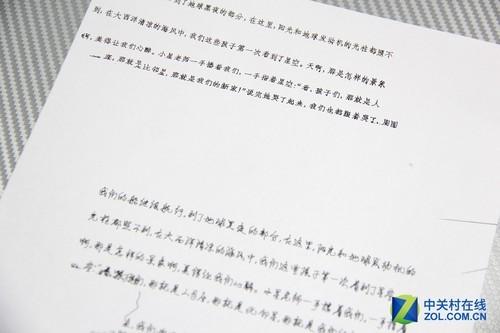 到了地球黑夜的部分，在这里，阳光和地球发动机的光柱都照不
到，在大西洋清凉的海风中，我们这些孩子第一次看到了星空。天啊，那是怎样的景象
啊，美得让我们心醉。小星老师一手搂着我们，一手指着星空:"看，孩子们，那就是人
座，那就是比邻星，那就是我们的新家!"说完她哭了起来，我们也都跟着哭了，周围
我们的船继续航行，到了地球黑夜的部分，在这里，阳光和地球发动机的
光柱都照不到，在大西洋清凉的海风中，我们这些孩子第一次看到了星空
啊，那是怎样的景象啊，美得让我们心醉。小星老师一手搂着我们，一手
那就是
中关村在线
ZOL.COM.CN